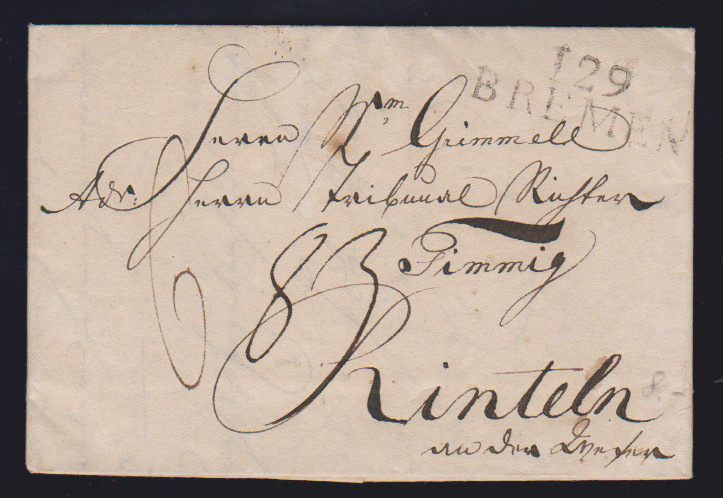 129
BREMEN
Herrn Grimmell
Adr: Herrn Tribunal Richter
Fimmig
83
Rinteln
an der Weser
8.-